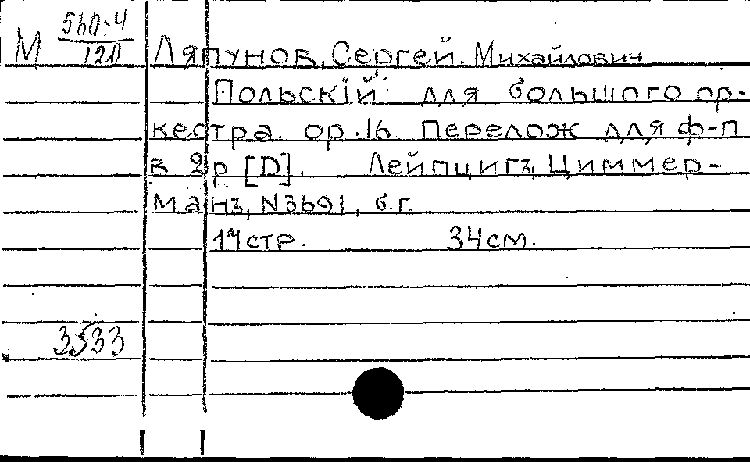 М 560-4
120
Ляпунов, Сергей Михайлович
Польскiй для большого ор-
кестра. ор.16. Перелож для ф-п
в 2 р [D]. Лейпциг, Циммер-
манъ, N3691, б.г.
стр. 34 см.
3533